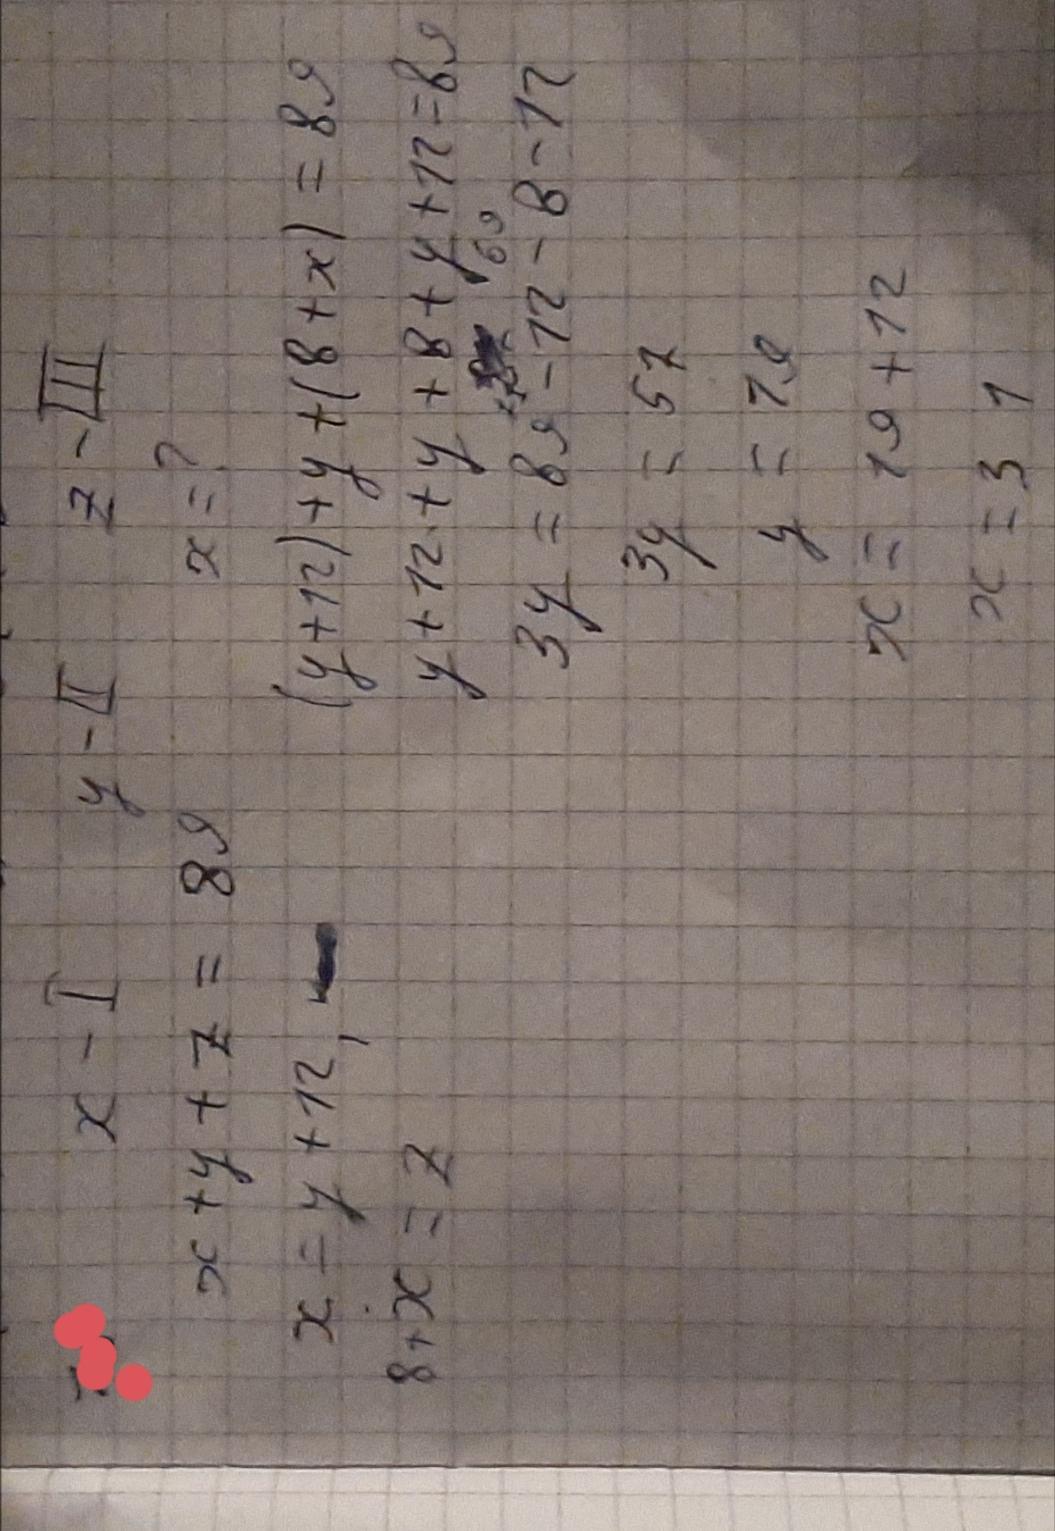 x - I y - II z - III
x + y + z = 89 x = ?
x = y + 12, (y + 12) + y + (8 + x) = 89
8 + x = z y + 12 + y + 8 + y + 12 = 89
69
3y = 89 - 12 - 8 - 12
3y = 57
y = 19
x = 19 + 12
x = 31